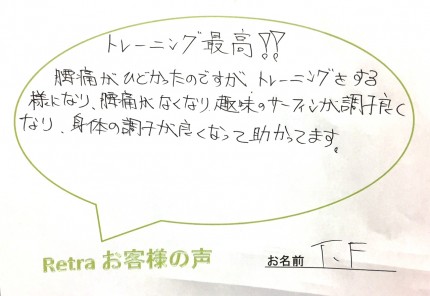 トレーニング最高!!
腰痛がひどかったのですが、トレーニングをする
様になり、腰痛がなくなり趣味のサーフィンが調子良く
なり、身体の調子が良くなって助かってます。
Retra お客様の声
お名前 T.F